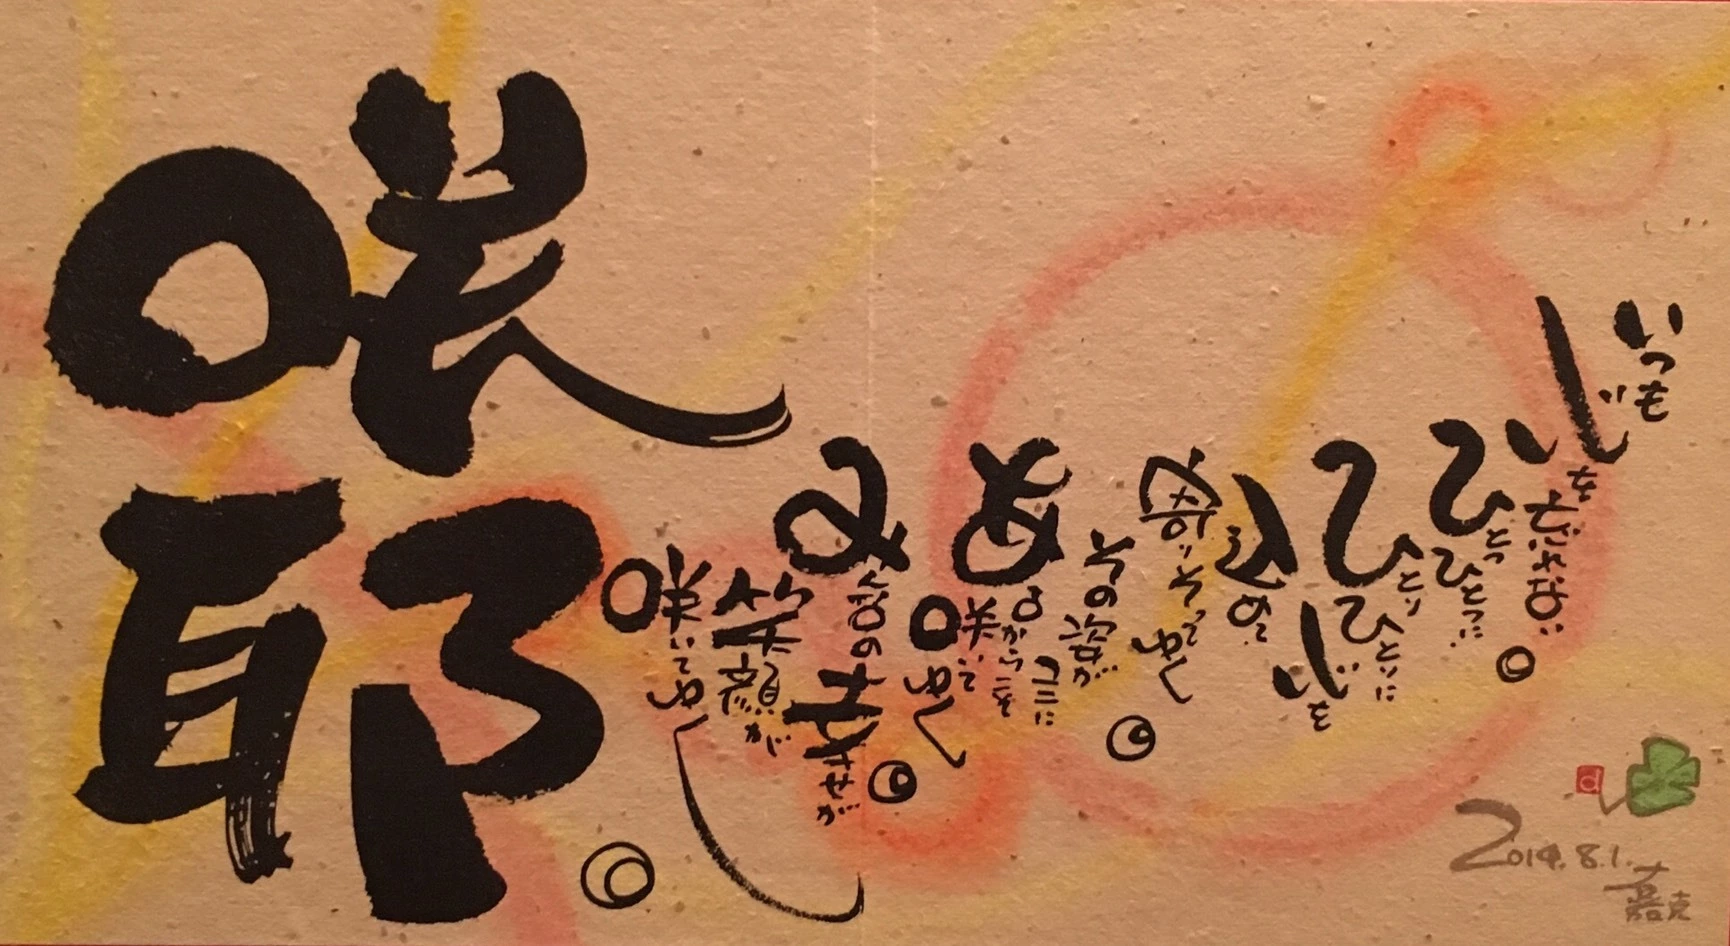 いつも
心を忘れない。
ひとつひとつに
ひとりひとりに
心を
込めて
寄りそってゆく。
その姿が
ここに
あるからこそ
咲いてゆく。
みんなの幸せが
笑顔が
咲いてゆく
咲耶。
2014.8.1.
嘉克